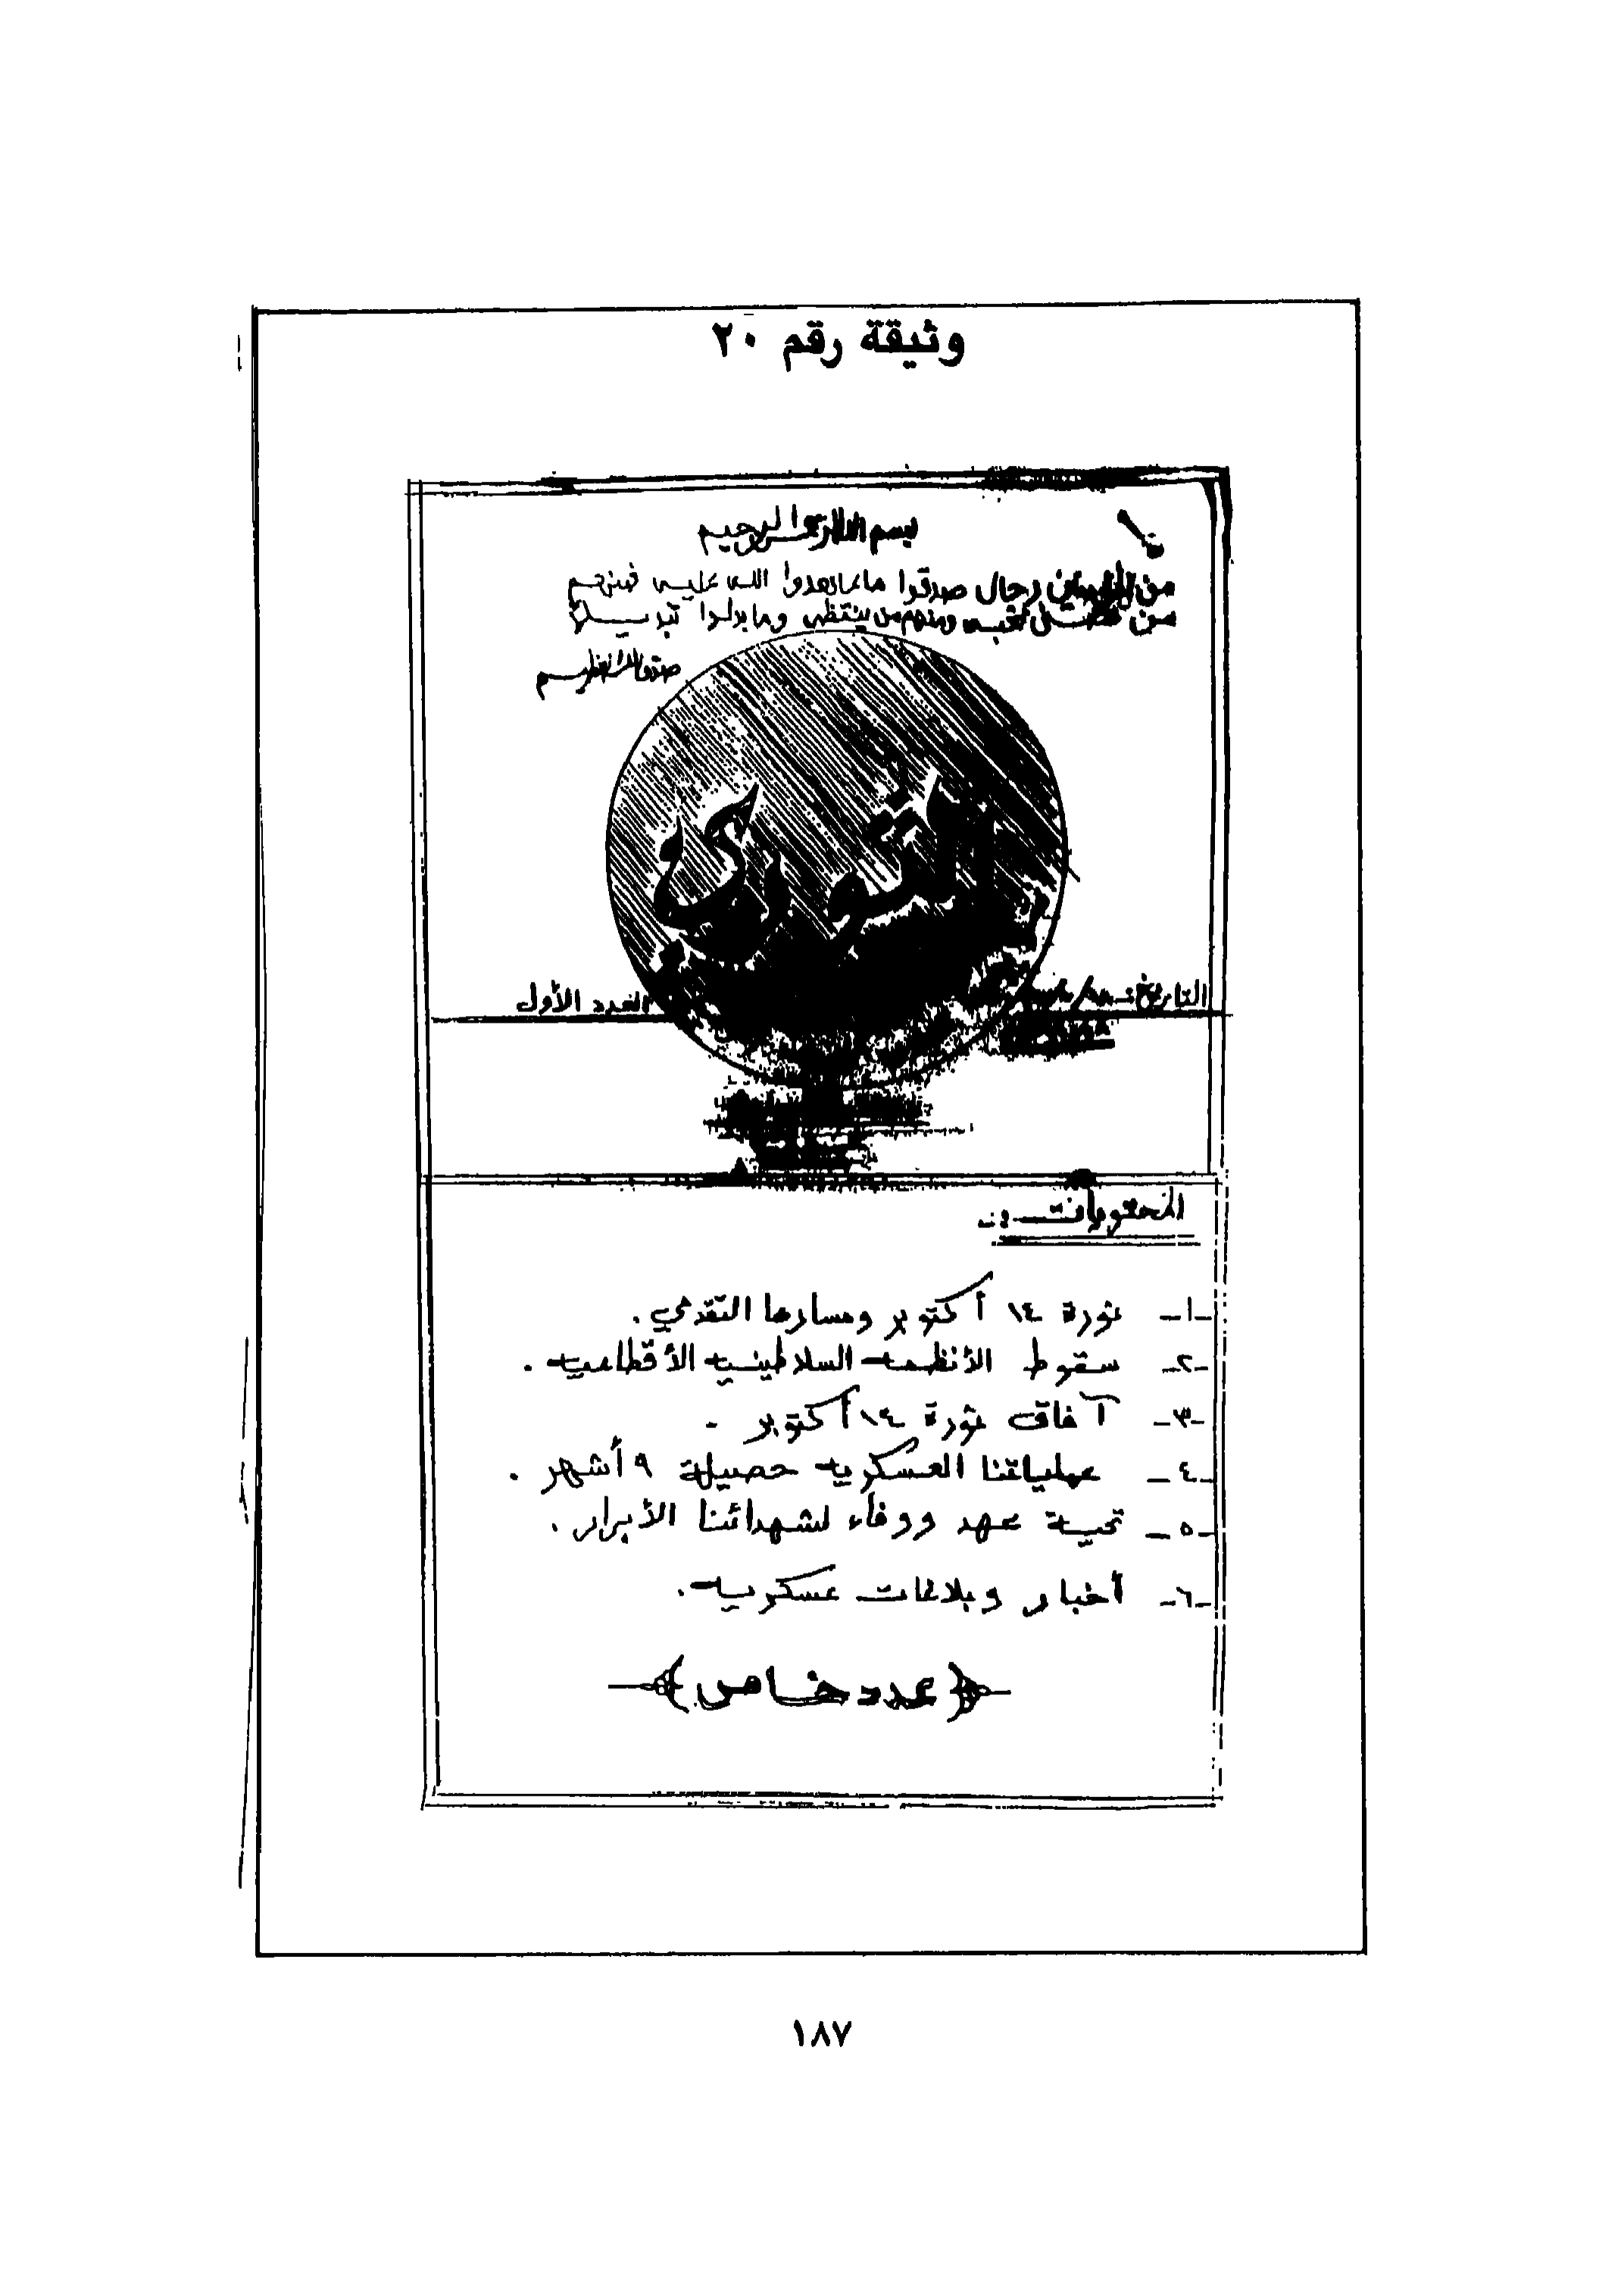 وثيقة رقم ٢٠
بسم الله الرحمن الرحيم
من المؤمنين رجال صدقوا ما عاهدوا الله عليه فمنهم
من قضى نحبه ومنهم من ينتظر وما بدلوا تبديلا
صدق الله العظيم
التاريخ :-
العدد الأول
المحتويات :-
-١- ثورة ١٤ أكتوبر ومسارها التقدمي .
-٢- سقوط الأنظمه السلاطينيه الأقطاعيه .
-٣- آفاق ثورة ١٤ أكتوبر .
-٤- عملياتنا العسكريه حصيلة ٩ أشهر .
-٥- تحية عهد ووفاء لشهدائنا الأبرار .
-٦- أخبار وبلاغات عسكريه .
﴿ عدد خاص ﴾
١٨٧